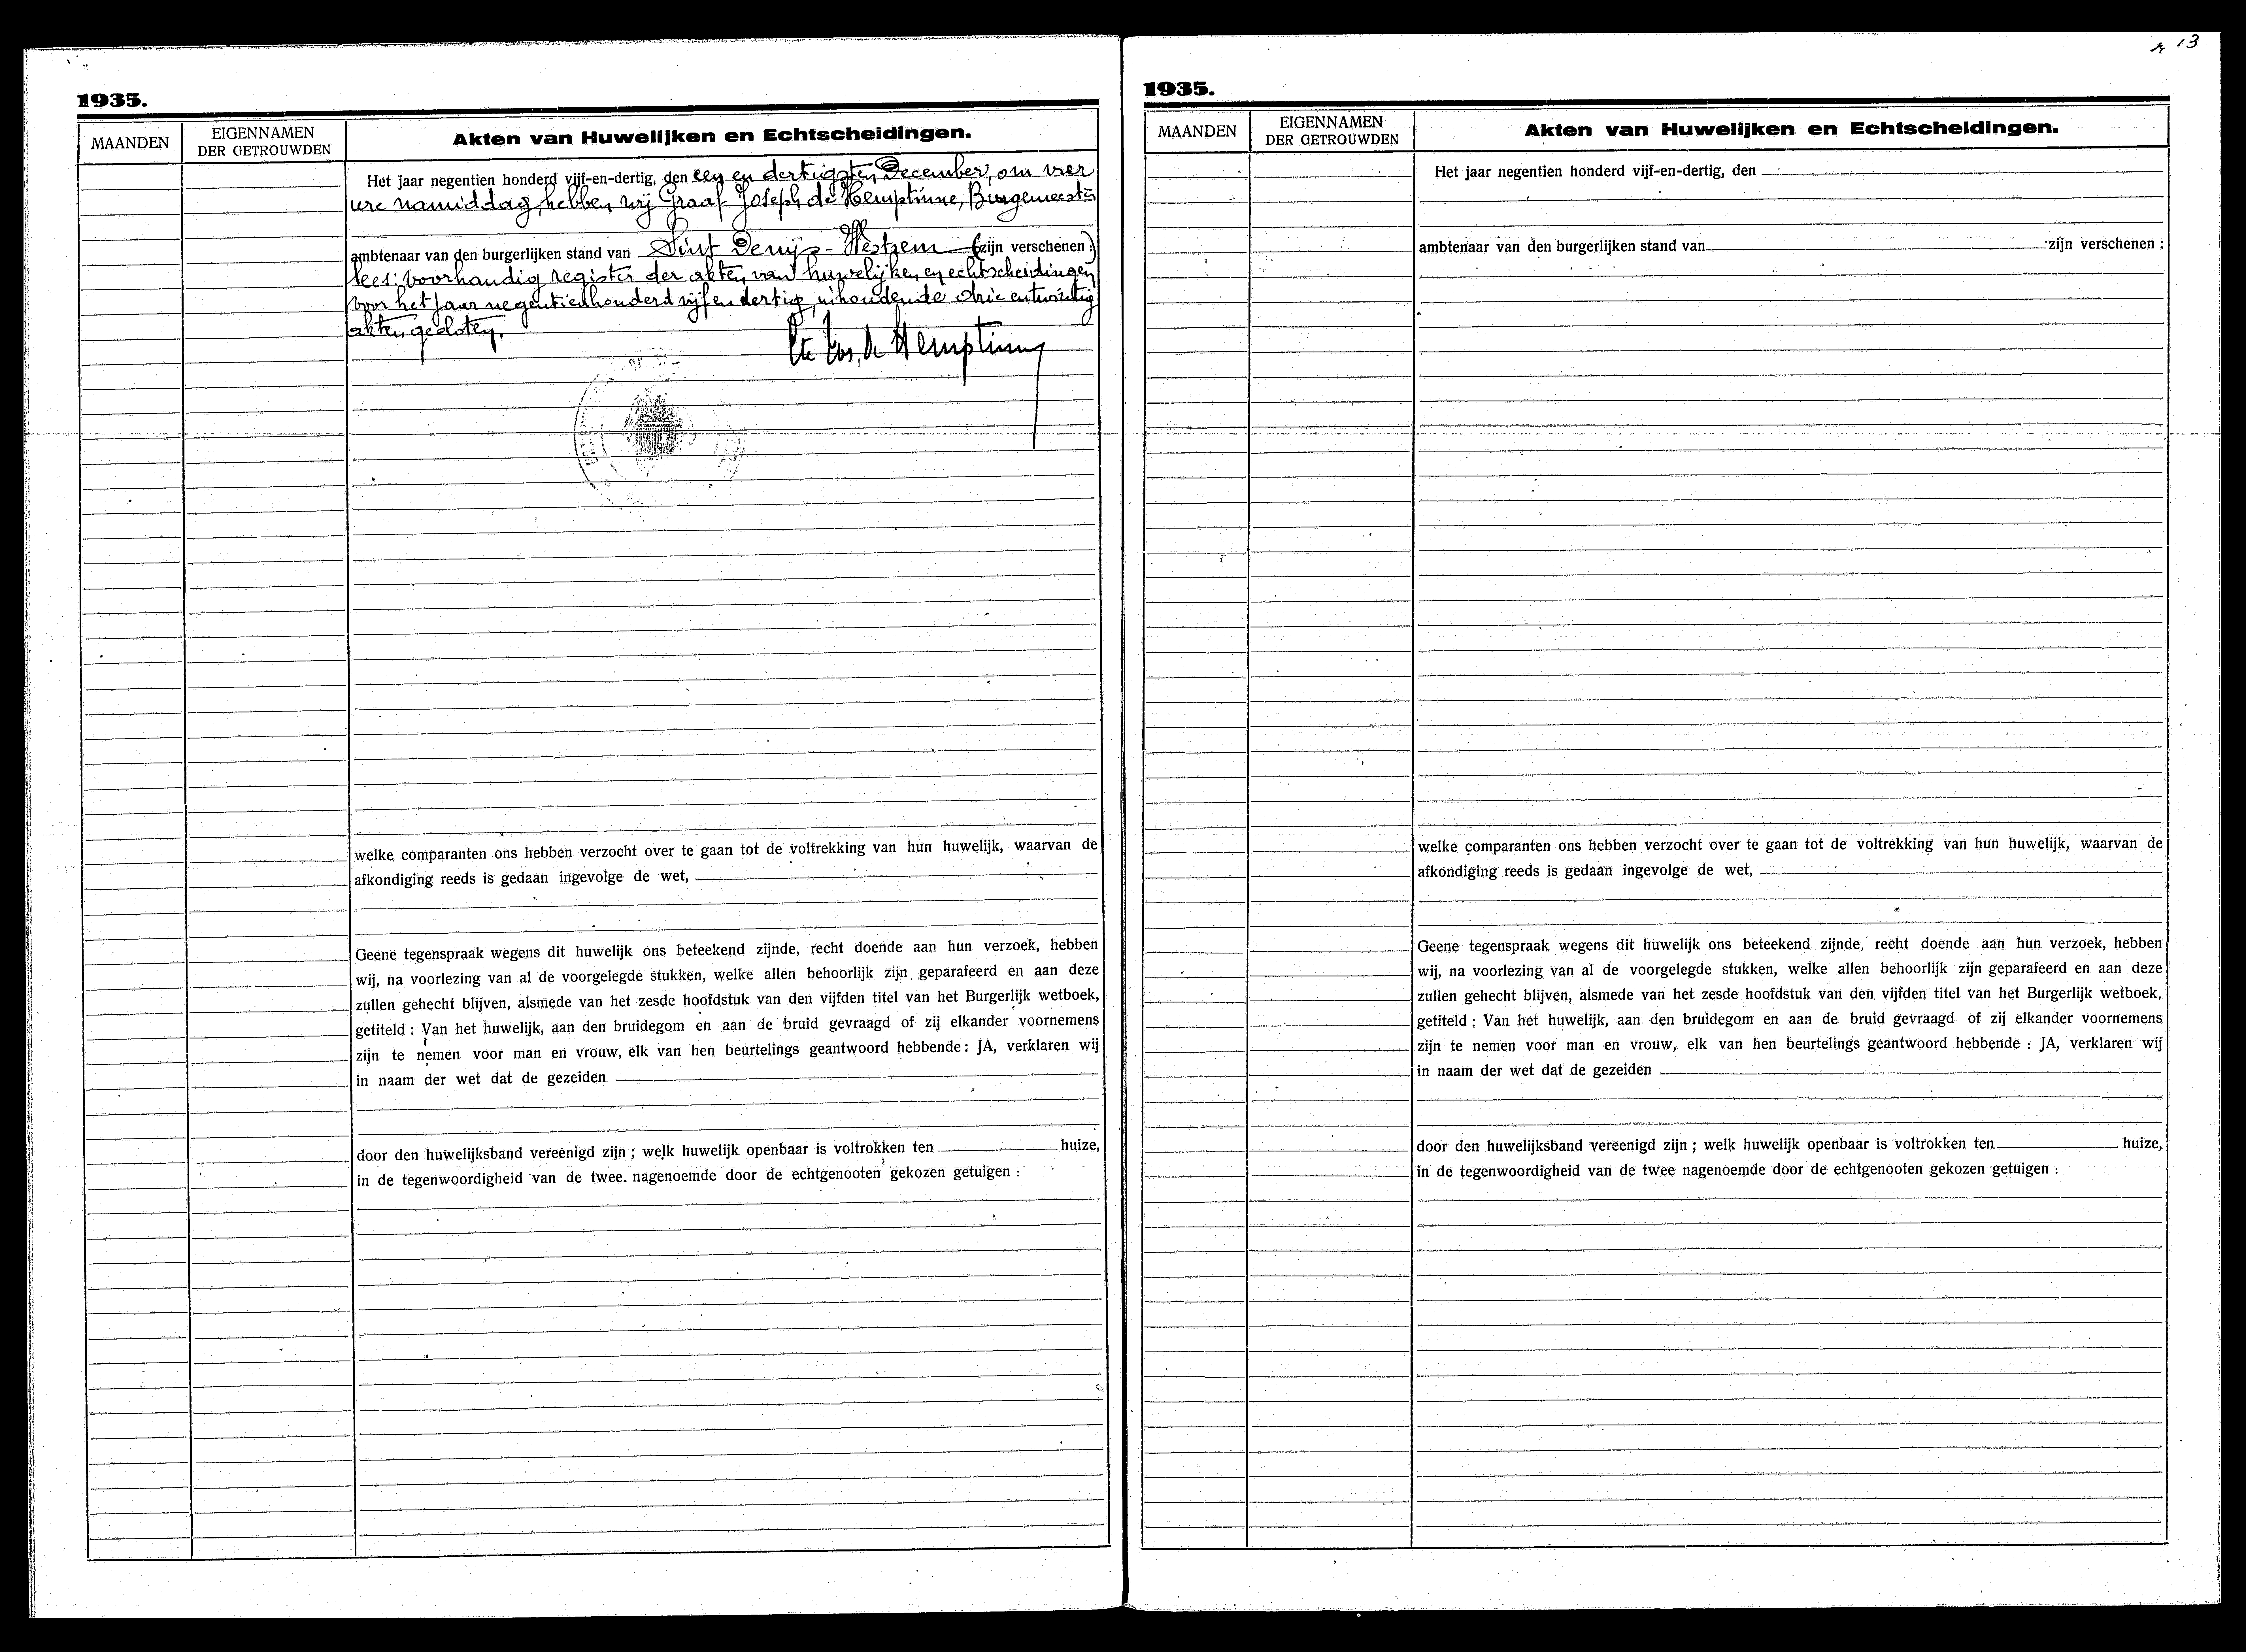 1935.
MAANDEN
EIGENNAMEN
DER GETROUWDEN
Akten van Huwelijken en Echtscheidingen.
Het jaar negentien honderd vijf-en-dertig, den een en dertigsten December, om vier
ure namiddag, hebben wij Graaf Joseph de Hemptinne, Burgemeester
ambtenaar van den burgerlijken stand van Sint Denijs-Westrem (zijn verschenen:)
lees: voorhandig register der akten van huwelijken en echtscheidingen
voor het jaar negentienhonderd vijf en dertig, inhoudende drie entwintig
akten, gesloten.
Cte Jos. de Hemptinne
welke comparanten ons hebben verzocht over te gaan tot de voltrekking van hun huwelijk, waarvan de
afkondiging reeds is gedaan ingevolge de wet,
Geene tegenspraak wegens dit huwelijk ons beteekend zijnde, recht doende aan hun verzoek, hebben
wij, na voorlezing van al de voorgelegde stukken, welke allen behoorlijk zijn geparafeerd en aan deze
zullen gehecht blijven, alsmede van het zesde hoofdstuk van den vijfden titel van het Burgerlijk wetboek,
getiteld : Van het huwelijk, aan den bruidegom en aan de bruid gevraagd of zij elkander voornemens
zijn te nemen voor man en vrouw, elk van hen beurtelings geantwoord hebbende : JA, verklaren wij
in naam der wet dat de gezeiden
door den huwelijksband vereenigd zijn ; welk huwelijk openbaar is voltrokken ten huize,
in de tegenwoordigheid van de twee. nagenoemde door de echtgenooten gekozen getuigen :
13
1935.
MAANDEN
EIGENNAMEN
DER GETROUWDEN
Akten van Huwelijken en Echtscheidingen.
Het jaar negentien honderd vijf-en-dertig, den
ambtenaar van den burgerlijken stand van zijn verschenen :
welke comparanten ons hebben verzocht over te gaan tot de voltrekking van hun huwelijk, waarvan de
afkondiging reeds is gedaan ingevolge de wet,
Geene tegenspraak wegens dit huwelijk ons beteekend zijnde, recht doende aan hun verzoek, hebben
wij, na voorlezing van al de voorgelegde stukken, welke allen behoorlijk zijn geparafeerd en aan deze
zullen gehecht blijven, alsmede van het zesde hoofdstuk van den vijfden titel van het Burgerlijk wetboek,
getiteld : Van het huwelijk, aan den bruidegom en aan de bruid gevraagd of zij elkander voornemens
zijn te nemen voor man en vrouw, elk van hen beurtelings geantwoord hebbende : JA, verklaren wij
in naam der wet dat de gezeiden
door den huwelijksband vereenigd zijn ; welk huwelijk openbaar is voltrokken ten huize,
in de tegenwoordigheid van de twee nagenoemde door de echtgenooten gekozen getuigen :